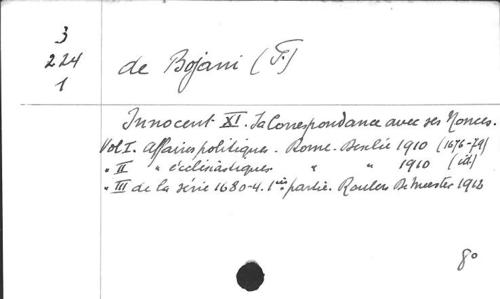 3
224
1
de Bojani (F.)
Innocent XI. Sa Correspondance avec ses Nonces.
Vol I. Affaires politiques. Rome. Desclée 1910 (1676-79)
" II " ecclésiastiques " " 1910 (id)
" III de la série 1680-4. 1ière partie. Roulers De Meester 1912
8°